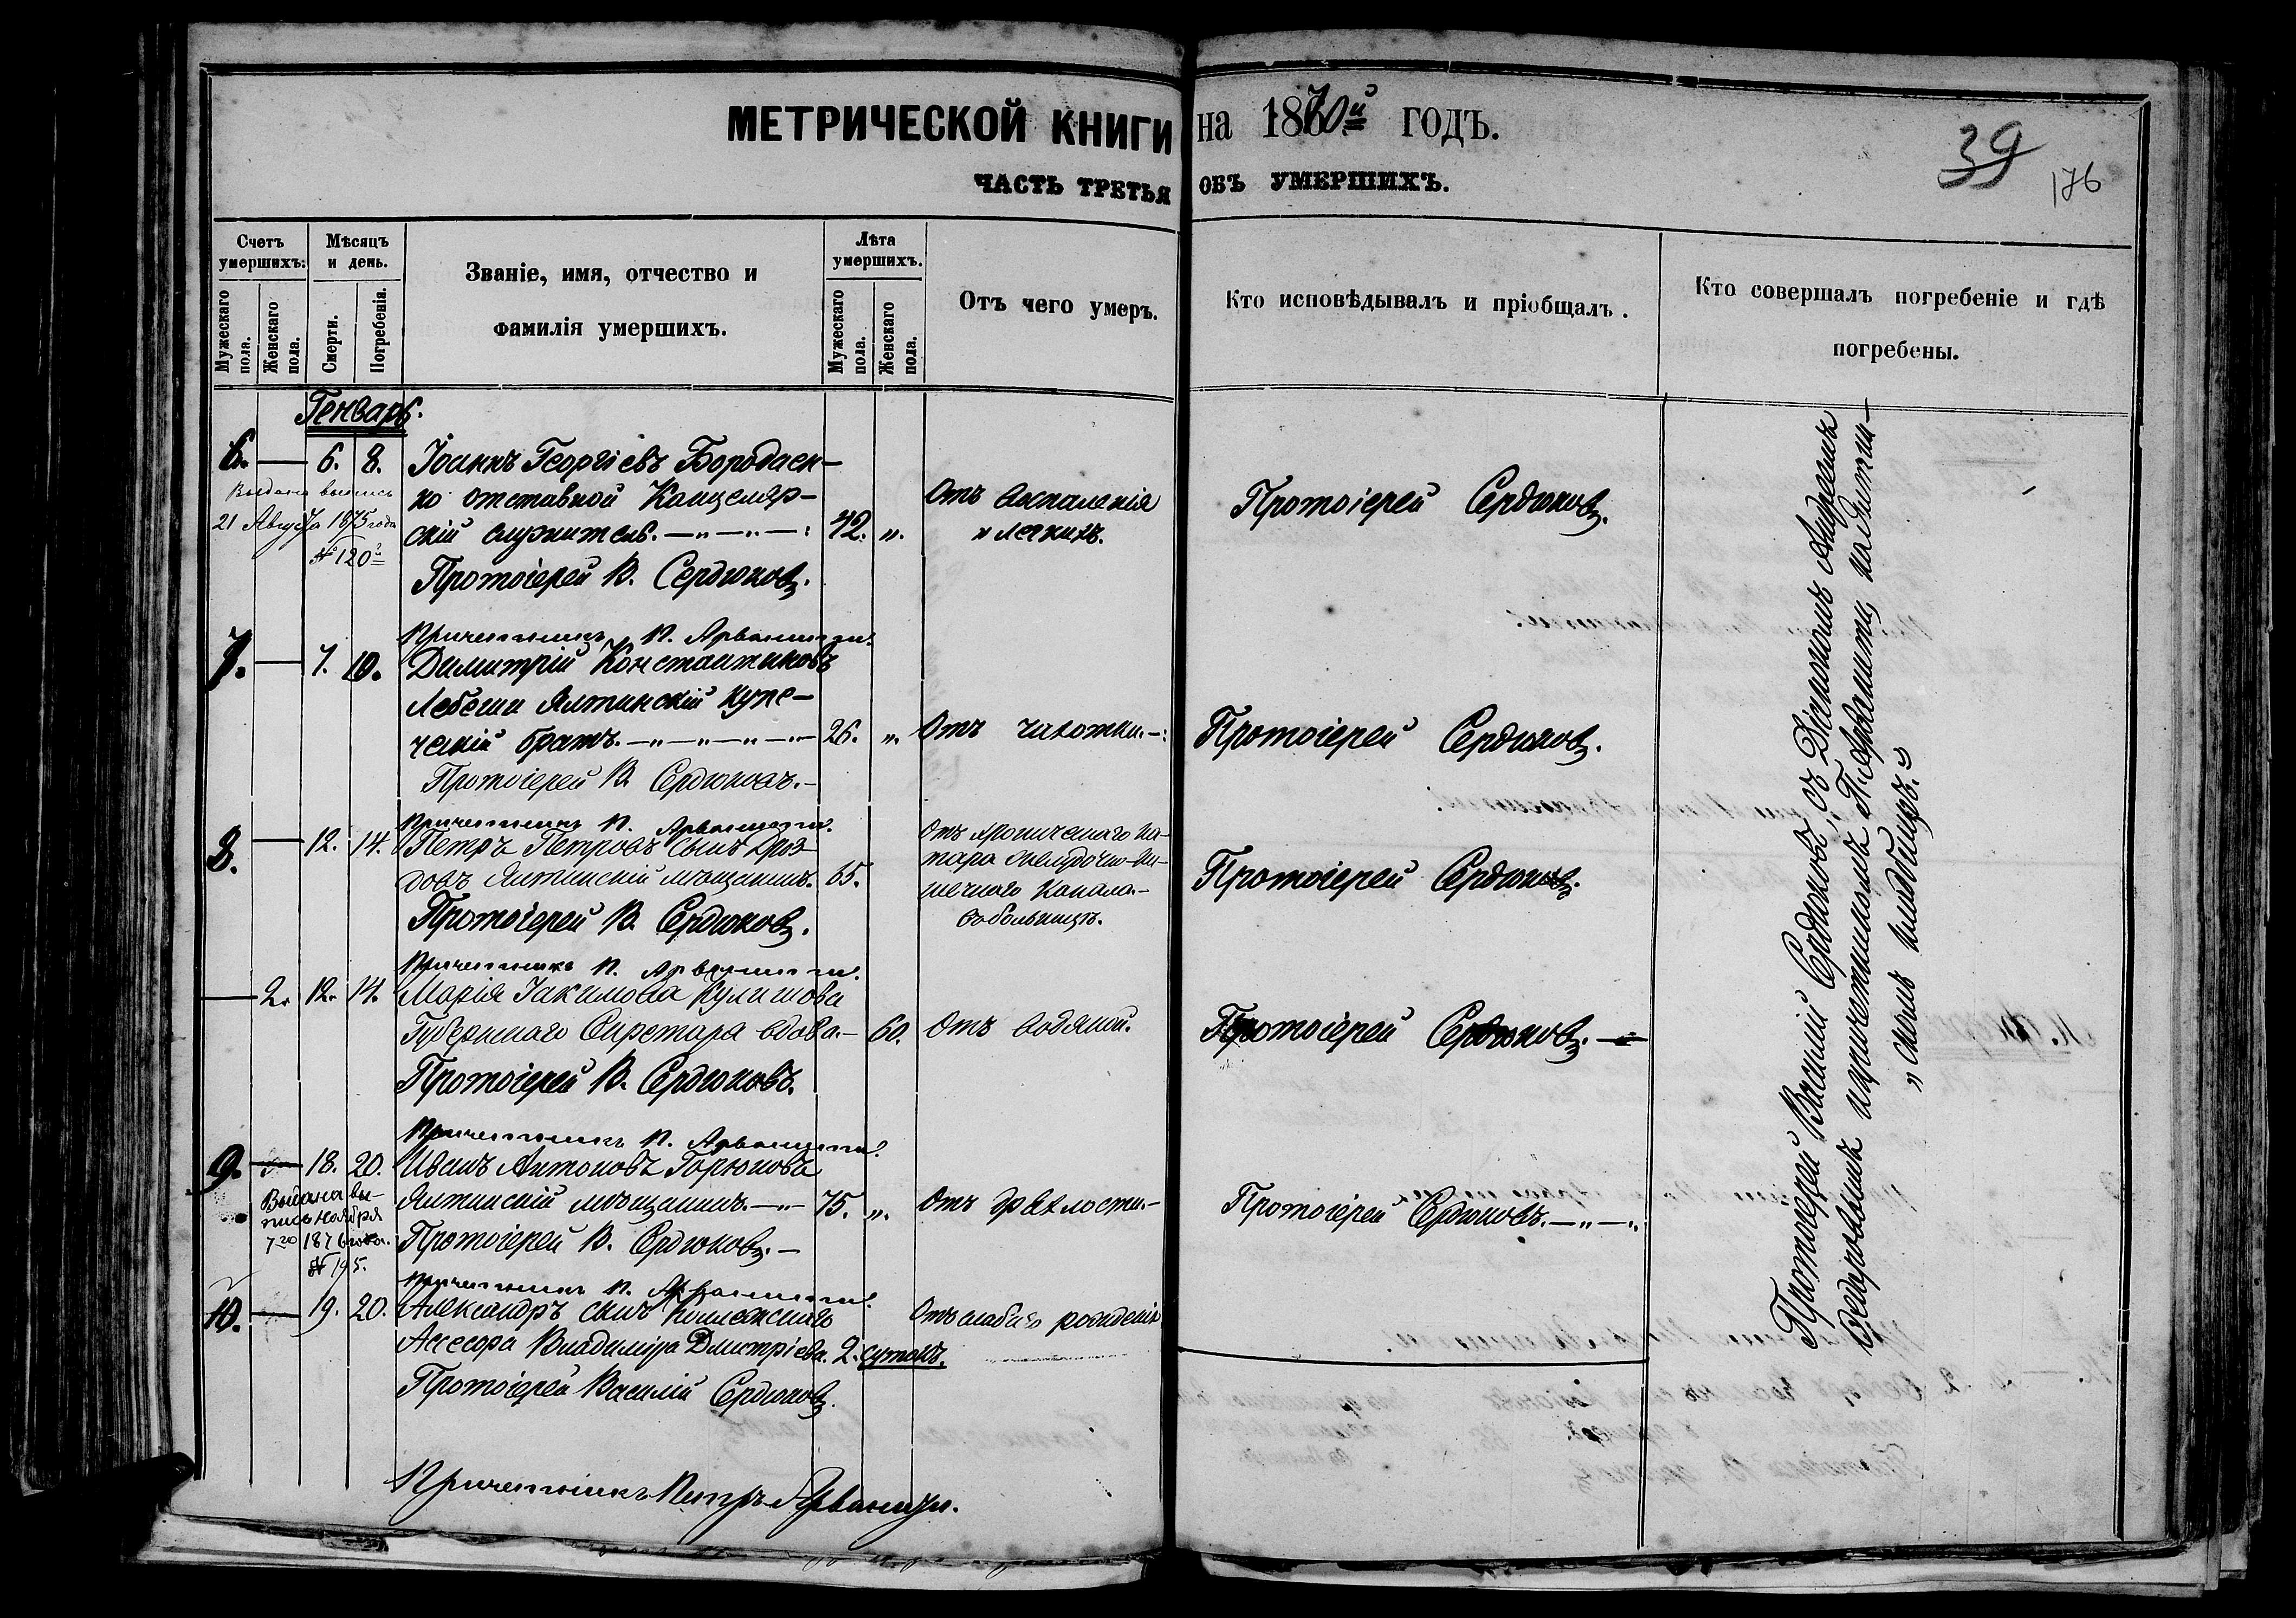 МЕТРИЧЕСКОЙ КНИГИ на 1870й годъ.
39
176
ЧАСТЬ ТРЕТЬЯ ОБЪ УМЕРШИХЪ.
Счетъ умершихъ:
Мѣсяцъ и день.
Званіе, имя, отчество и фамилія умершихъ.
Лѣта умершихъ.
Отъ чего умеръ.
Кто исповѣдывалъ и пріобщалъ.
Кто совершалъ погребеніе и гдѣ погребены.
Мужескаго пола.
Женскаго пола.
Смерти.
Погребенія.
Мужескаго пола.
Женскаго пола.
Генварь.
6. — 6. 8. Іоаннъ Георгіевъ Бородаен-
ко отставной Канцеляр-
скій служитель. 42. „. Отъ воспаленія
„ легкихъ.
Протоіерей Сердюковъ.
Выдана выпись
21 Августа 1875 года
№ 120
Протоіерей В. Сердюковъ.
Причетникъ П. Арванити.
7. — 7. 10. Димитрій Константиновъ
Лебеши Ялтинскій купе-
ческій братъ. 26. „. Отъ чахотки.
Протоіерей Сердюковъ.
Протоіерей В. Сердюковъ.
Причетникъ П. Арванити.
8. — 12. 14. Петръ Петровъ сынъ Дроз-
довъ Ялтинскій мѣщанинъ. 65.
Отъ хроническаго ка-
тара желудочно-ки-
шечнаго канала
въ больницѣ.
Протоіерей Сердюковъ.
Протоіерей В. Сердюковъ.
Причетникъ П. Арванити.
— 2. 12. 14. Марія Іакимова
Губернскаго Секретаря вдова. 60. Отъ водяной.
Протоіерей Сердюковъ.
Протоіерей В. Сердюковъ.
Причетникъ П. Арванити.
9. — 18. 20. Иванъ Антоновъ Горюновъ
Ялтинскій мѣщанинъ. 75. „. Отъ дряхлости.
Протоіерей Сердюковъ.
Выдана вы-
пись Ноября
7го 1876 года.
№ 195.
Протоіерей В. Сердюковъ.
Причетникъ П. Арванити.
10. — 19. 20. Александръ сынъ Коллежскаго
Ассесора Владиміра Дмитріева. 2. сутокъ.
Отъ слабаго рожденія
Протоіерей Василій Сердюковъ.
Причетникъ Петръ Арванити.
Протоіерей Василій Сердюковъ съ Діакономъ Андреемъ